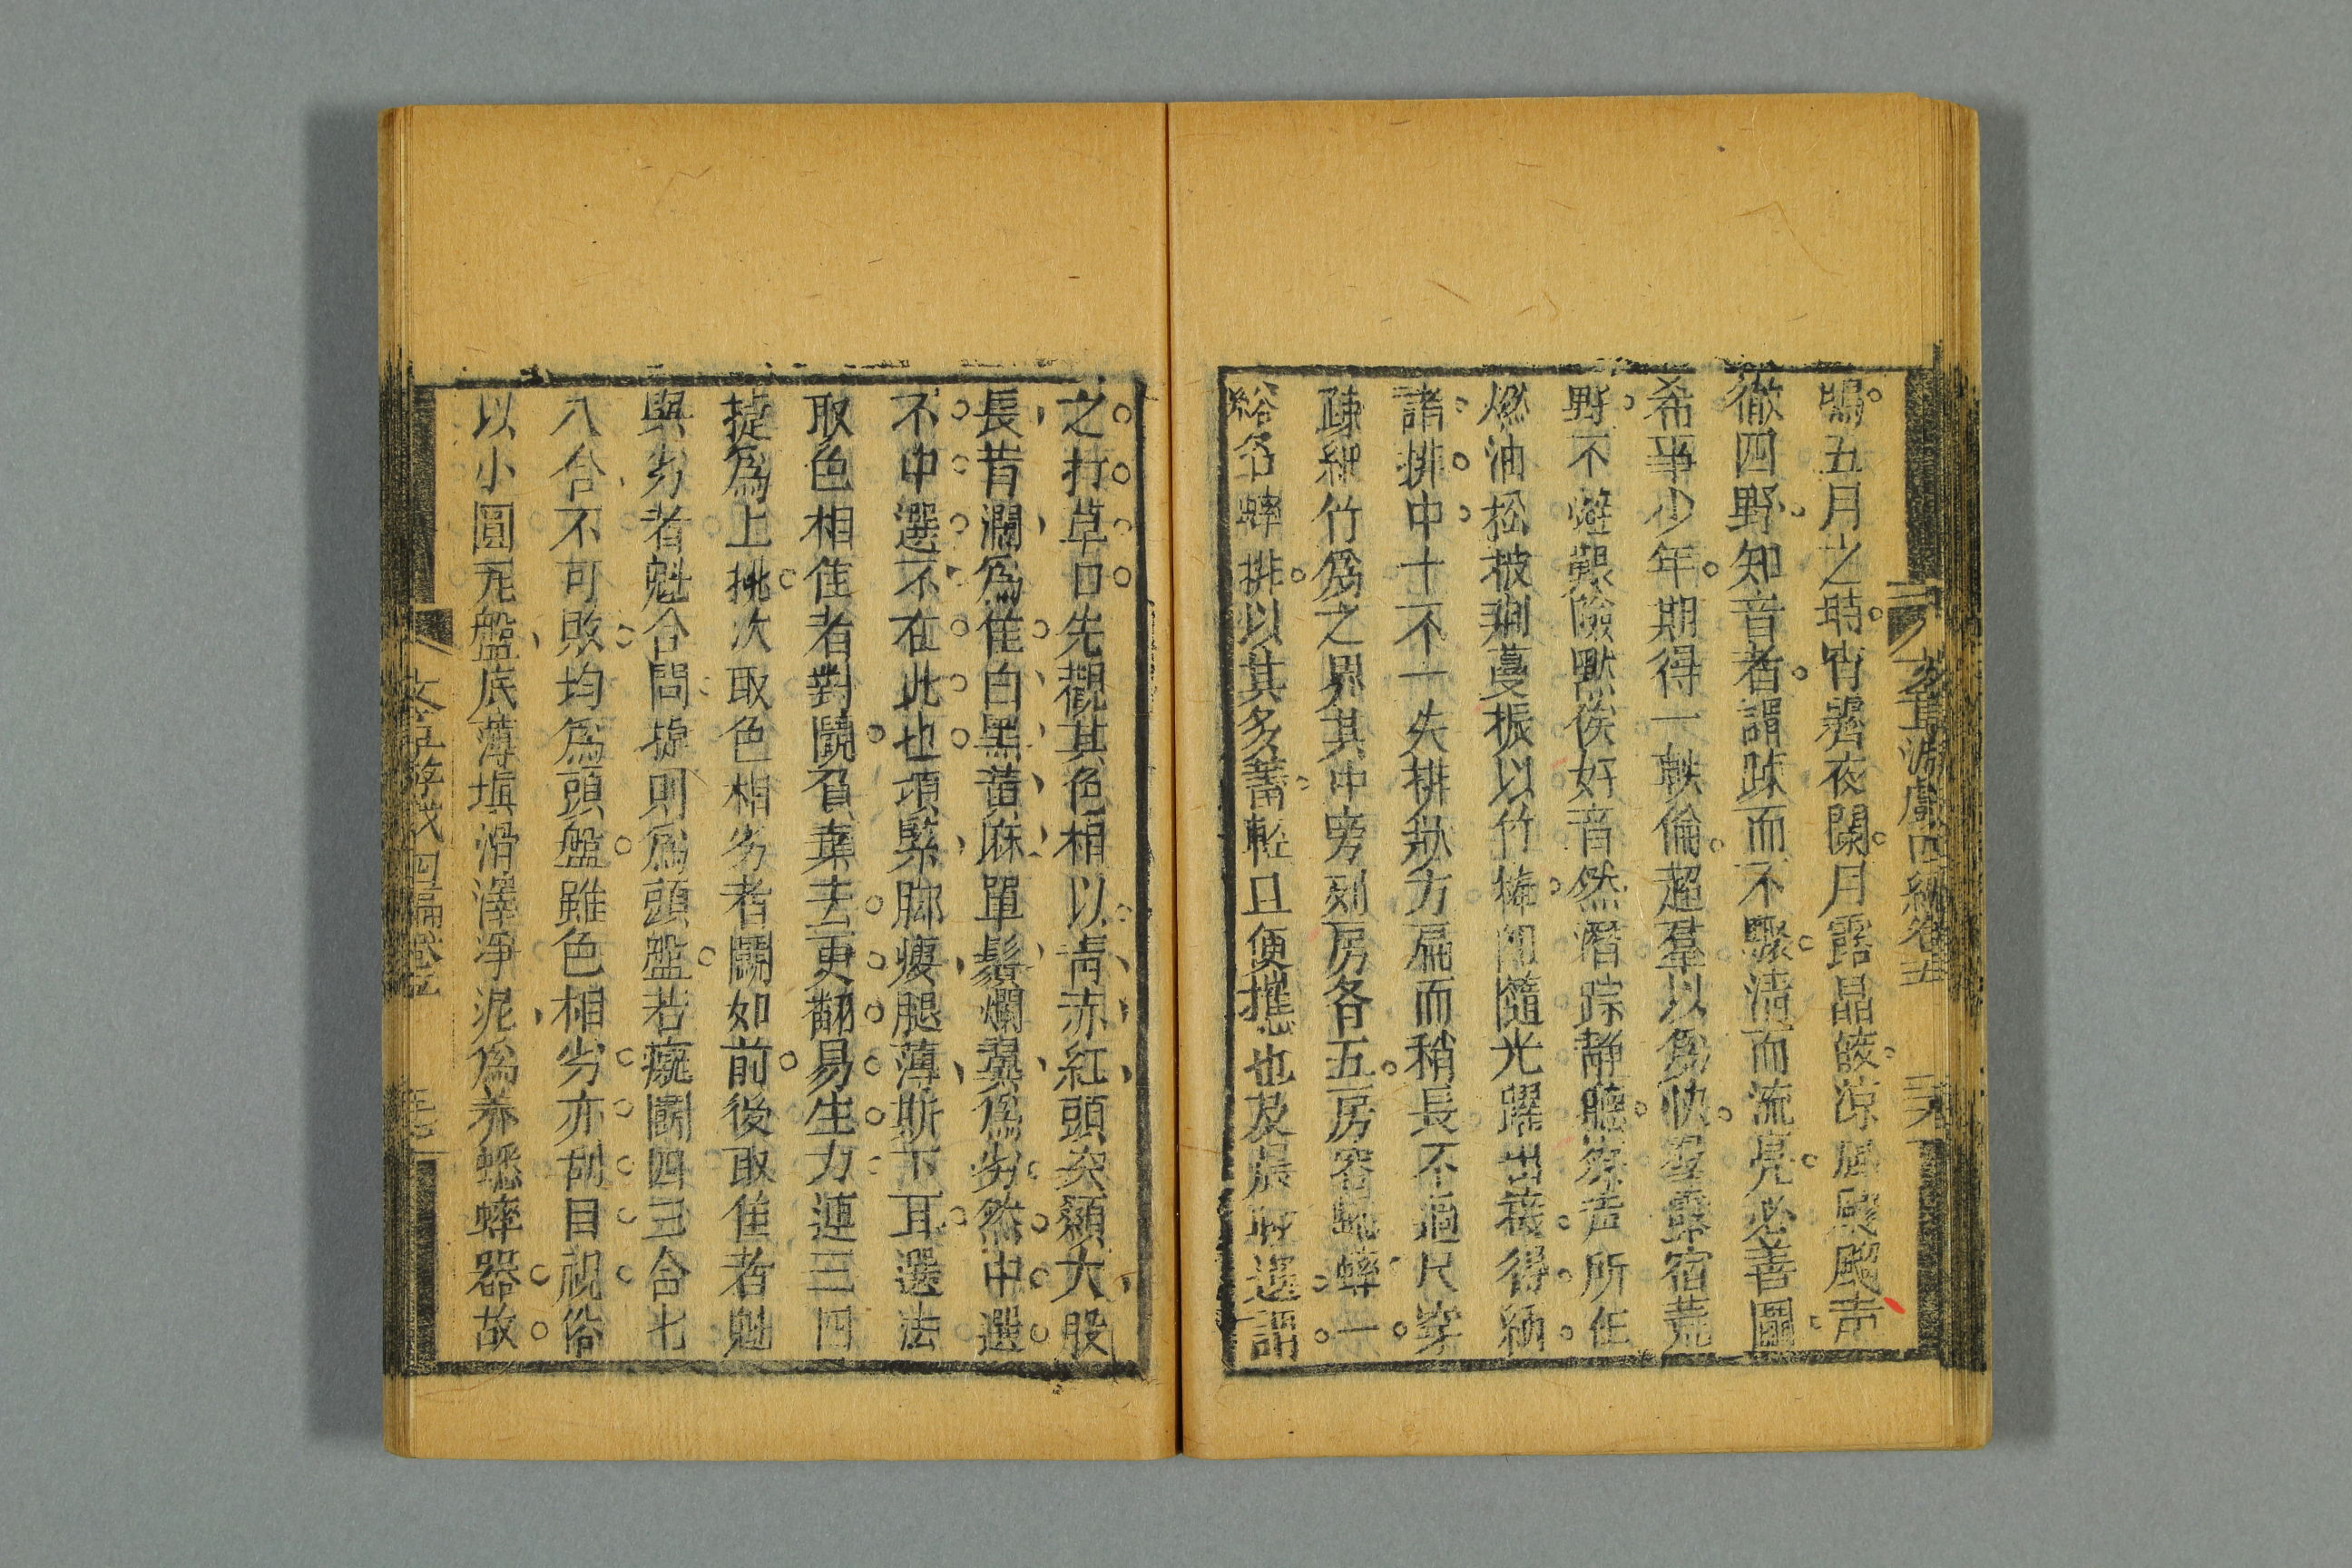 鳴五月之時宵露夜闌月露晶皎涼風颸颸声
徹四野知音者謂踈而不驟清而流亮必善鬪
希爭少年期得一軼倫超羣以爲快羣露宿荒
野不避艱險黙俟好音然潛踪静聽察声所在
燃油松披荆蔓振以竹棒即隨光躍出獲得納
諸排中十不一失排狀方扁而稍長不過尺穿
疎細竹爲之界其中旁列房各五房容蟋蟀一
給名蟀排以其多蓄輕且便攜也及晨取選謂
之打草口先觀其色相以青赤紅頭突額大股
長昔濶爲佳白黑黄麻單鬚爛翼爲劣然中選
不中選不在此也項緊脚瘦腿薄斯下耳選法
取色相佳者對鬪負棄去更翻易生力連三四
捷爲上挑次取色相劣者鬪如前後取佳者魁
與劣者魁合問捷則爲頭盤若癡鬪四三合七
八合不可敗均爲頭盤雖色相劣亦刮目視俗
以小圓瓦盤底薄塡滑澤凈泥爲养蟋蟀器故